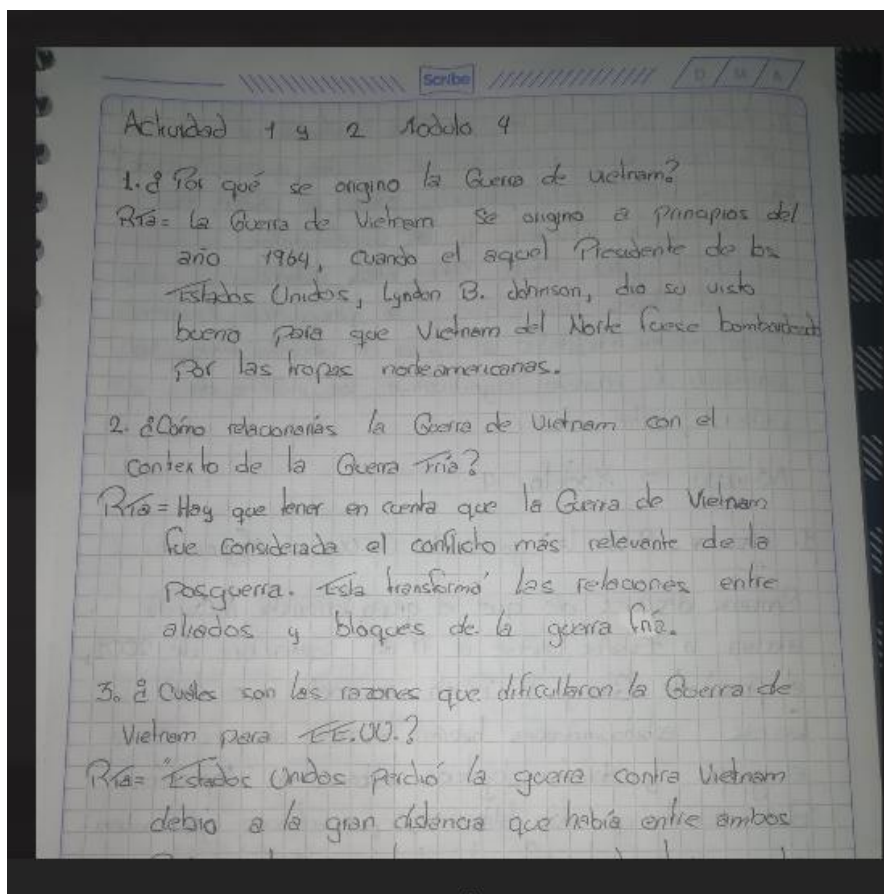 Scribe
D / M / A
Actividad 1 y 2 Modulo 4
1. ¿Por qué se origino la Guerra de vietnam?
RTa= La Guerra de Vietnam se origino a principios del
año 1964, cuando el aquel Presidente de los
Estados Unidos, Lyndon B. Johnson, dio su visto
bueno para que Vietnam del Norte fuese bombardeado
por las tropas norteamericanas.
2. ¿Cómo relacionarías la Guerra de Vietnam con el
contexto de la Guerra Fría?
RTa= Hay que tener en cuenta que la Guerra de Vietnam
fue considerada el conflicto más relevante de la
posguerra. Esta transformó las relaciones entre
aliados y bloques de la guerra fría.
3. ¿Cuáles son las razones que dificultaron la Guerra de
Vietnam para EE.UU.?
RTa= Estados Unidos perdió la guerra contra Vietnam
debio a la gran distancia que había entre ambos